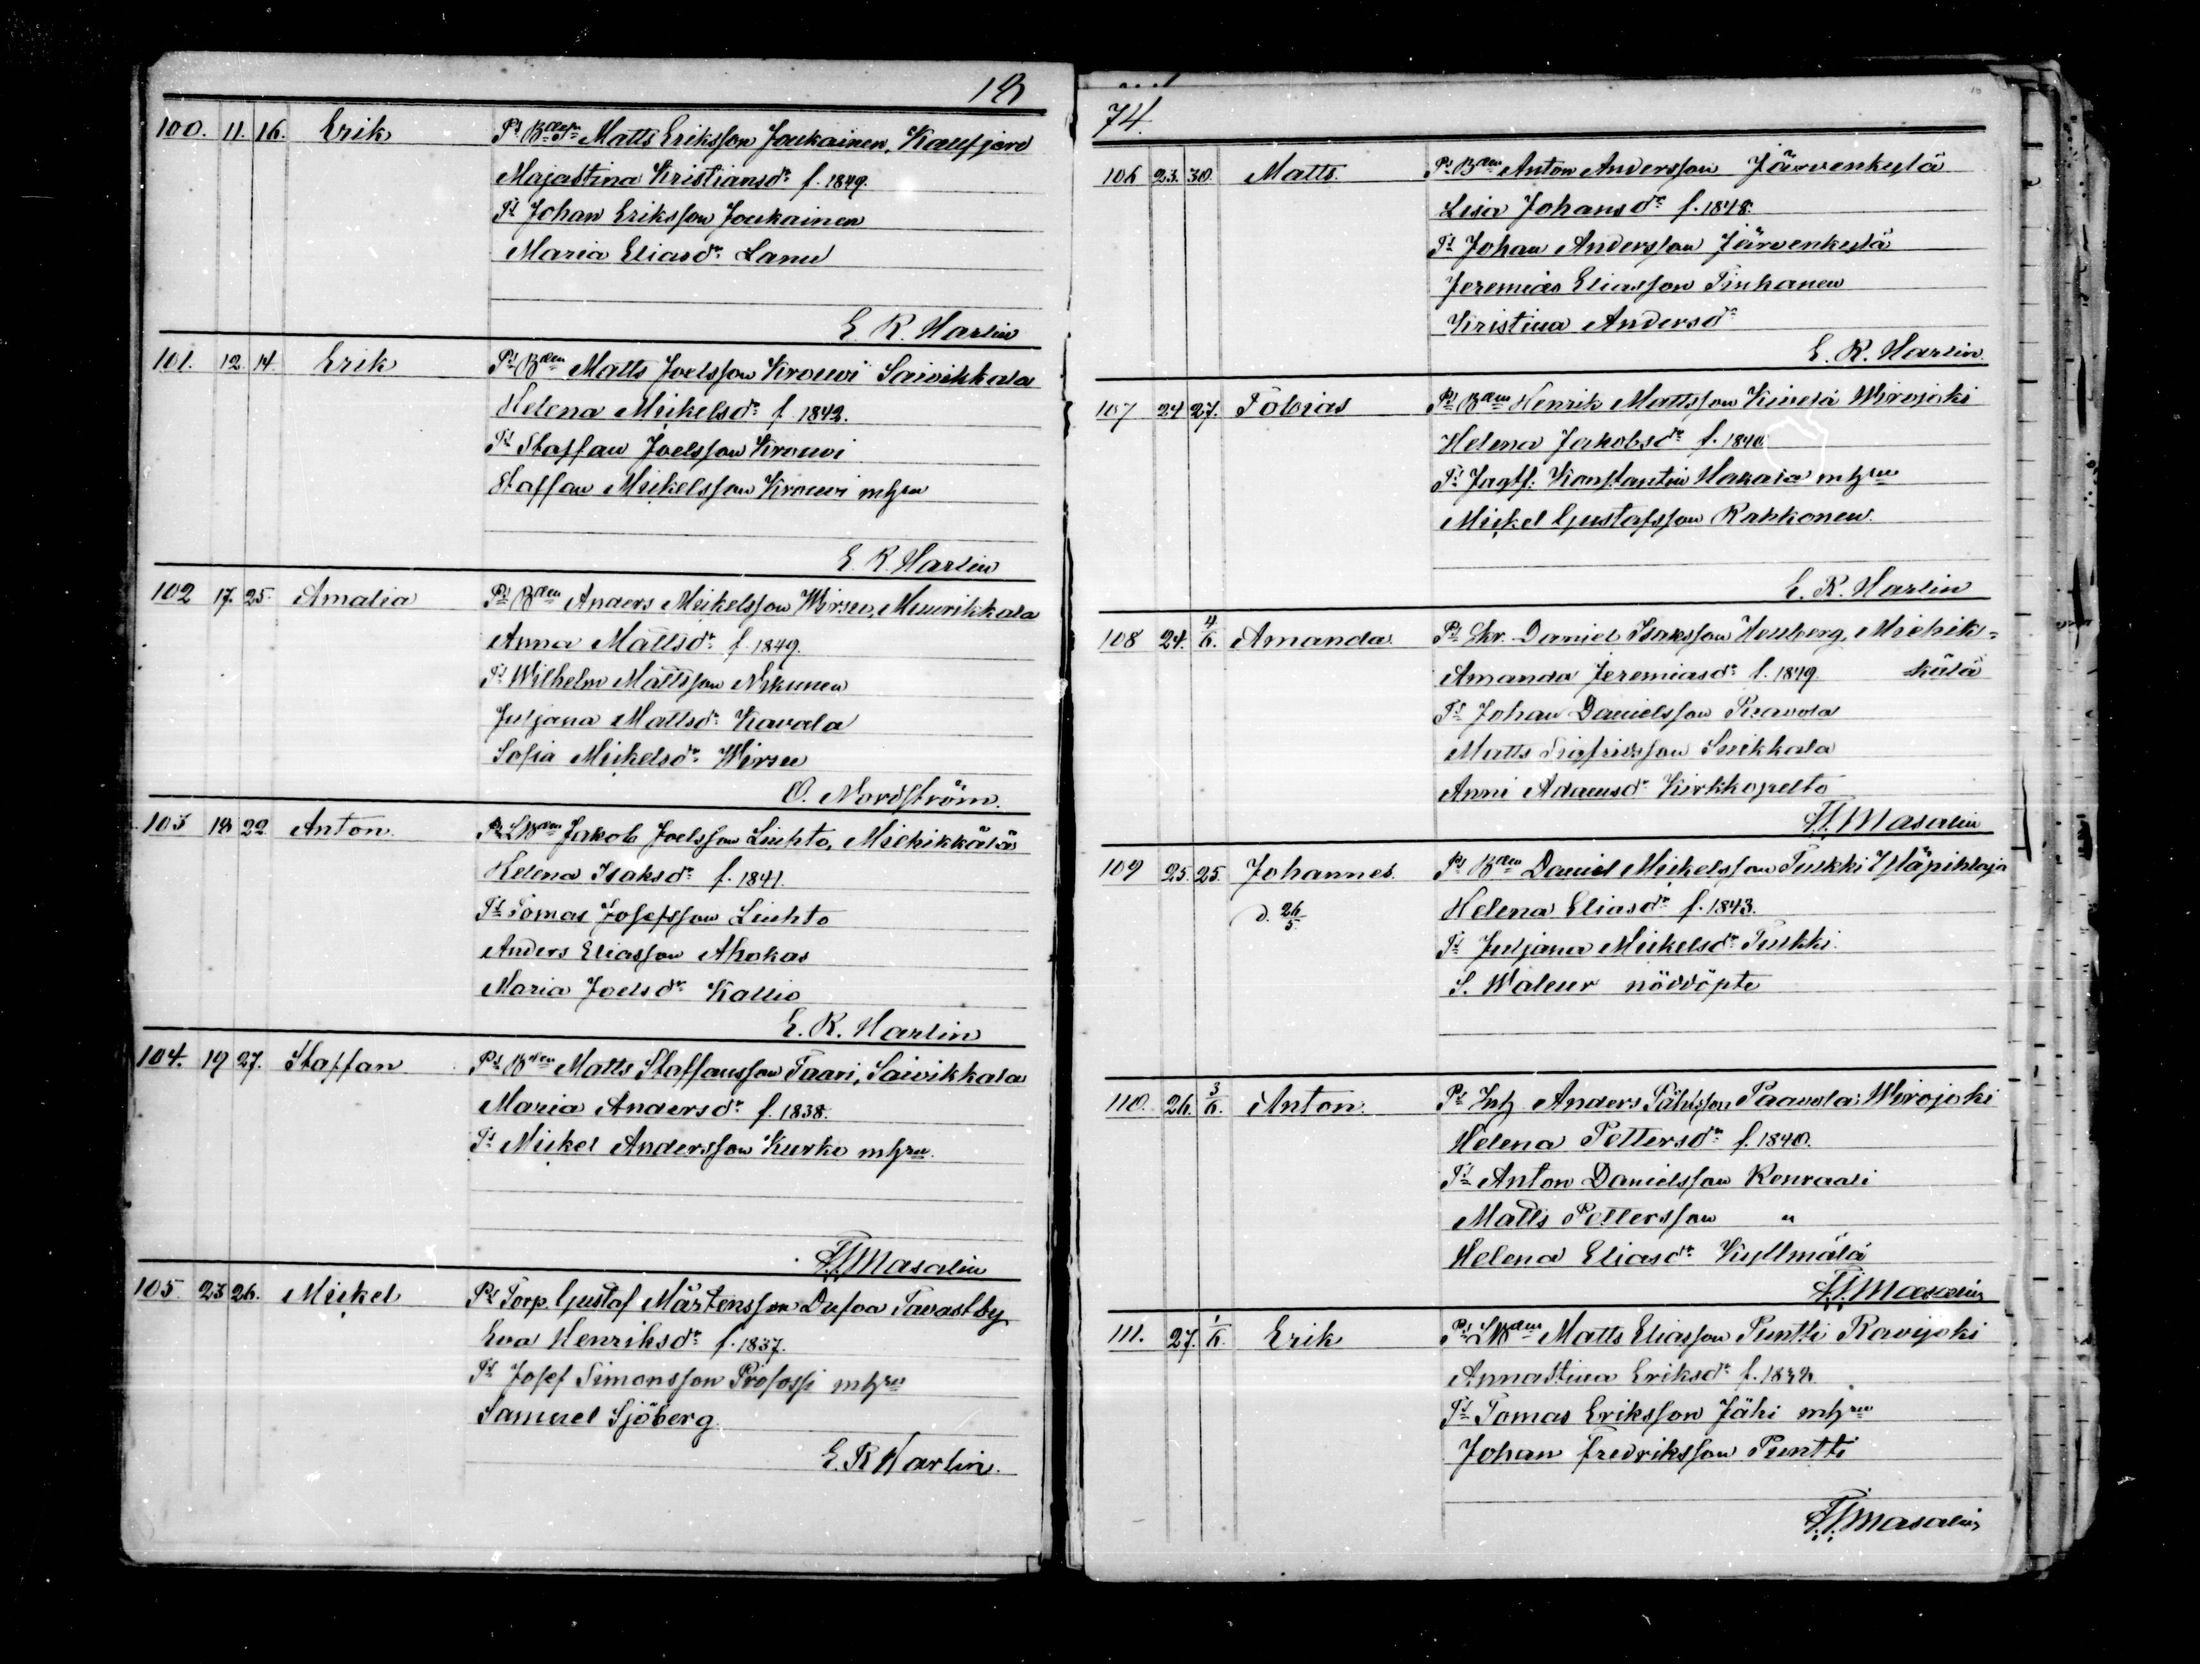 18
100. 11. 16. Erik Pr Matts Eriksson Joukainen, Kallfjerd
Majastina Kristiansdr f. 1849.
Tt Johan Eriksson Joukainen
Maria Eliasdr Lanu
E. R. Harlin
101. 12. 14. Erik Pr Bden Matts Joelsson Krouvi Saivikkala
Helena Mickelsdr f. 1842.
Tt Staffan Joelsson Krouvi
Staffan Mickelsson Krouvi m hru
E. R. Harlin
102 17. 25. Amalia Pr Bden Anders Mickelsson Wirsu, Muurikkala
Anna Mattsdr f. 1849.
Tt Wilhelm Mattsson Nikunen
Juljana Mattsdr Kavala
Sofia Mickelsdr Wirsu
O. Nordström.
103 18 22 Anton. Pr LBden Jakob Joelsson Liuhto, Miehikkälä
Helena Isaksdr f. 1841.
Tt Tomas Josefsson Liuhto
Anders Eliasson Ahokas
Maria Joelsdr Kallio
E. R. Harlin
104. 19 27. Staffan Pr Bden Matts Staffansson Taavi, Saivikkala
Maria Andersdr f. 1838.
Tt Mickel Andersson Kurko m hru.
F. F. Masalin
105. 23 26. Mickel Pr Torp. Gustaf Mårtensson Dufva Tavastby
Eva Henriksdr f. 1837.
Tt Josef Simonsson Profossi m hru
Samuel Sjöberg.
E. R Harlin.
74.
106 23. 30. Matts. Pr Bden Anton Andersson Järvenkylä
Lisa Johansdr f. 1848.
Tt Johan Andersson Järvenkylä
Jeremias Eliasson Tinkanen
Kristina Andersdr
E. R. Harlin.
107 24 27. Tobias Pr Bden Henrik Mattsson Wirojoki
Helena Jakobsdr f. 1840.
Tt Jagtf. Konstantin Harala m hru
Mickel Gustafsson Rakkonen.
E. R. Harlin
108 24. 4/6. Amanda. Pr Skr. Daniel Isaksson Hellberg, Miehik=
Amanda Jeremiasdr f. 1849. kälä
Tt Johan Danielsson Paavola
Matts Sigfridsson Suikkala
Anni Adamsdr Kirkkopelto
F. F. Masalin
109 25. 25. Johannes. Pr Bden Daniel Mickelsson Tulkki Yläpihlaja
d. 26/5. Helena Eliasdr f. 1843.
Tt Juljana Mickelsdr Tulkki.
S. Waleur nöddöpte
110. 26. 3/6. Anton. Pr Inh. Anders Påhlsson Paavola, Wirojoki
Helena Pettersdr f. 1840.
Tt Anton Danielsson Konraali
Matts Pettersson "
Helena Eliasdr Kyllmälä
F. F. Masalin
111. 27. 1/6. Erik Pr LBden Matts Eliasson Puntti Ravijoki
Annastina Eriksdr f. 1832.
Tt Tomas Eriksson Jähi m hru
Johan Fredriksson Puntti
F. F. Masalin